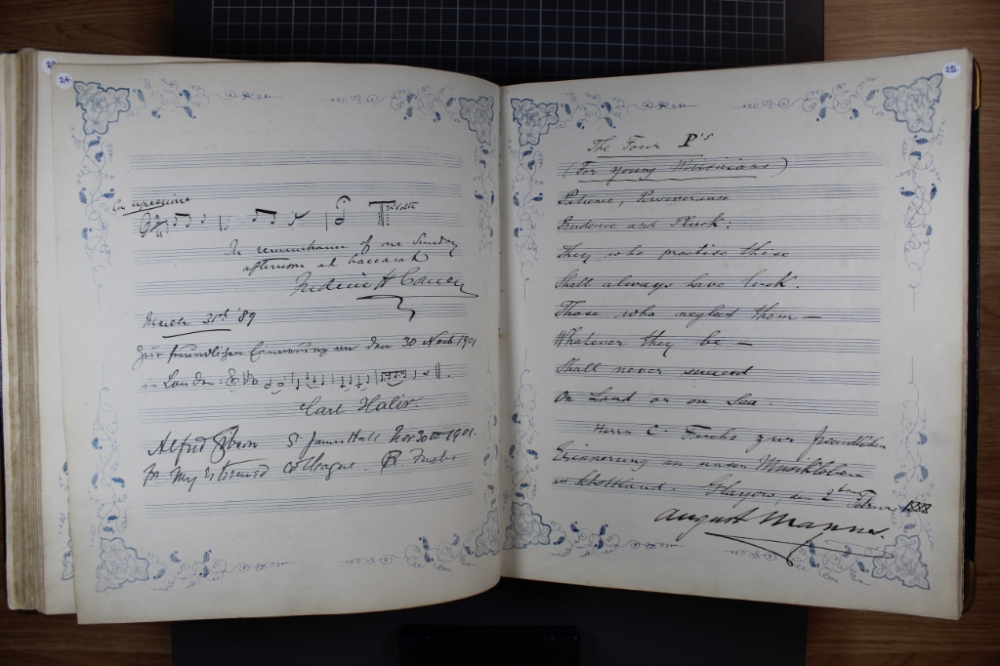 24
Con espressione
In remembrance of one Sunday
afternoon at baccarat
Frederic H Cowen
March 31st '89
Zur freundlichen Erinnerung an den 30 Novb 1901
in London:
Carl Halir.
Alfred Gibson St James Hall Nov 30th 1901.
To my esteemed colleague. Fuchs
25
The Four P's
(For young Musicians)
Patience, Perseverance
Prudence and Pluck:
They who practise these
Shall always have luck.
Those who neglect them —
Whatever they be —
Shall never succeed
On Land or on Sea.
Herrn C. Fuchs zur freundlichen
Erinnerung an unser Musikleben
in Schottland. Glasgow den 2ten Februar 1888
August Manns.